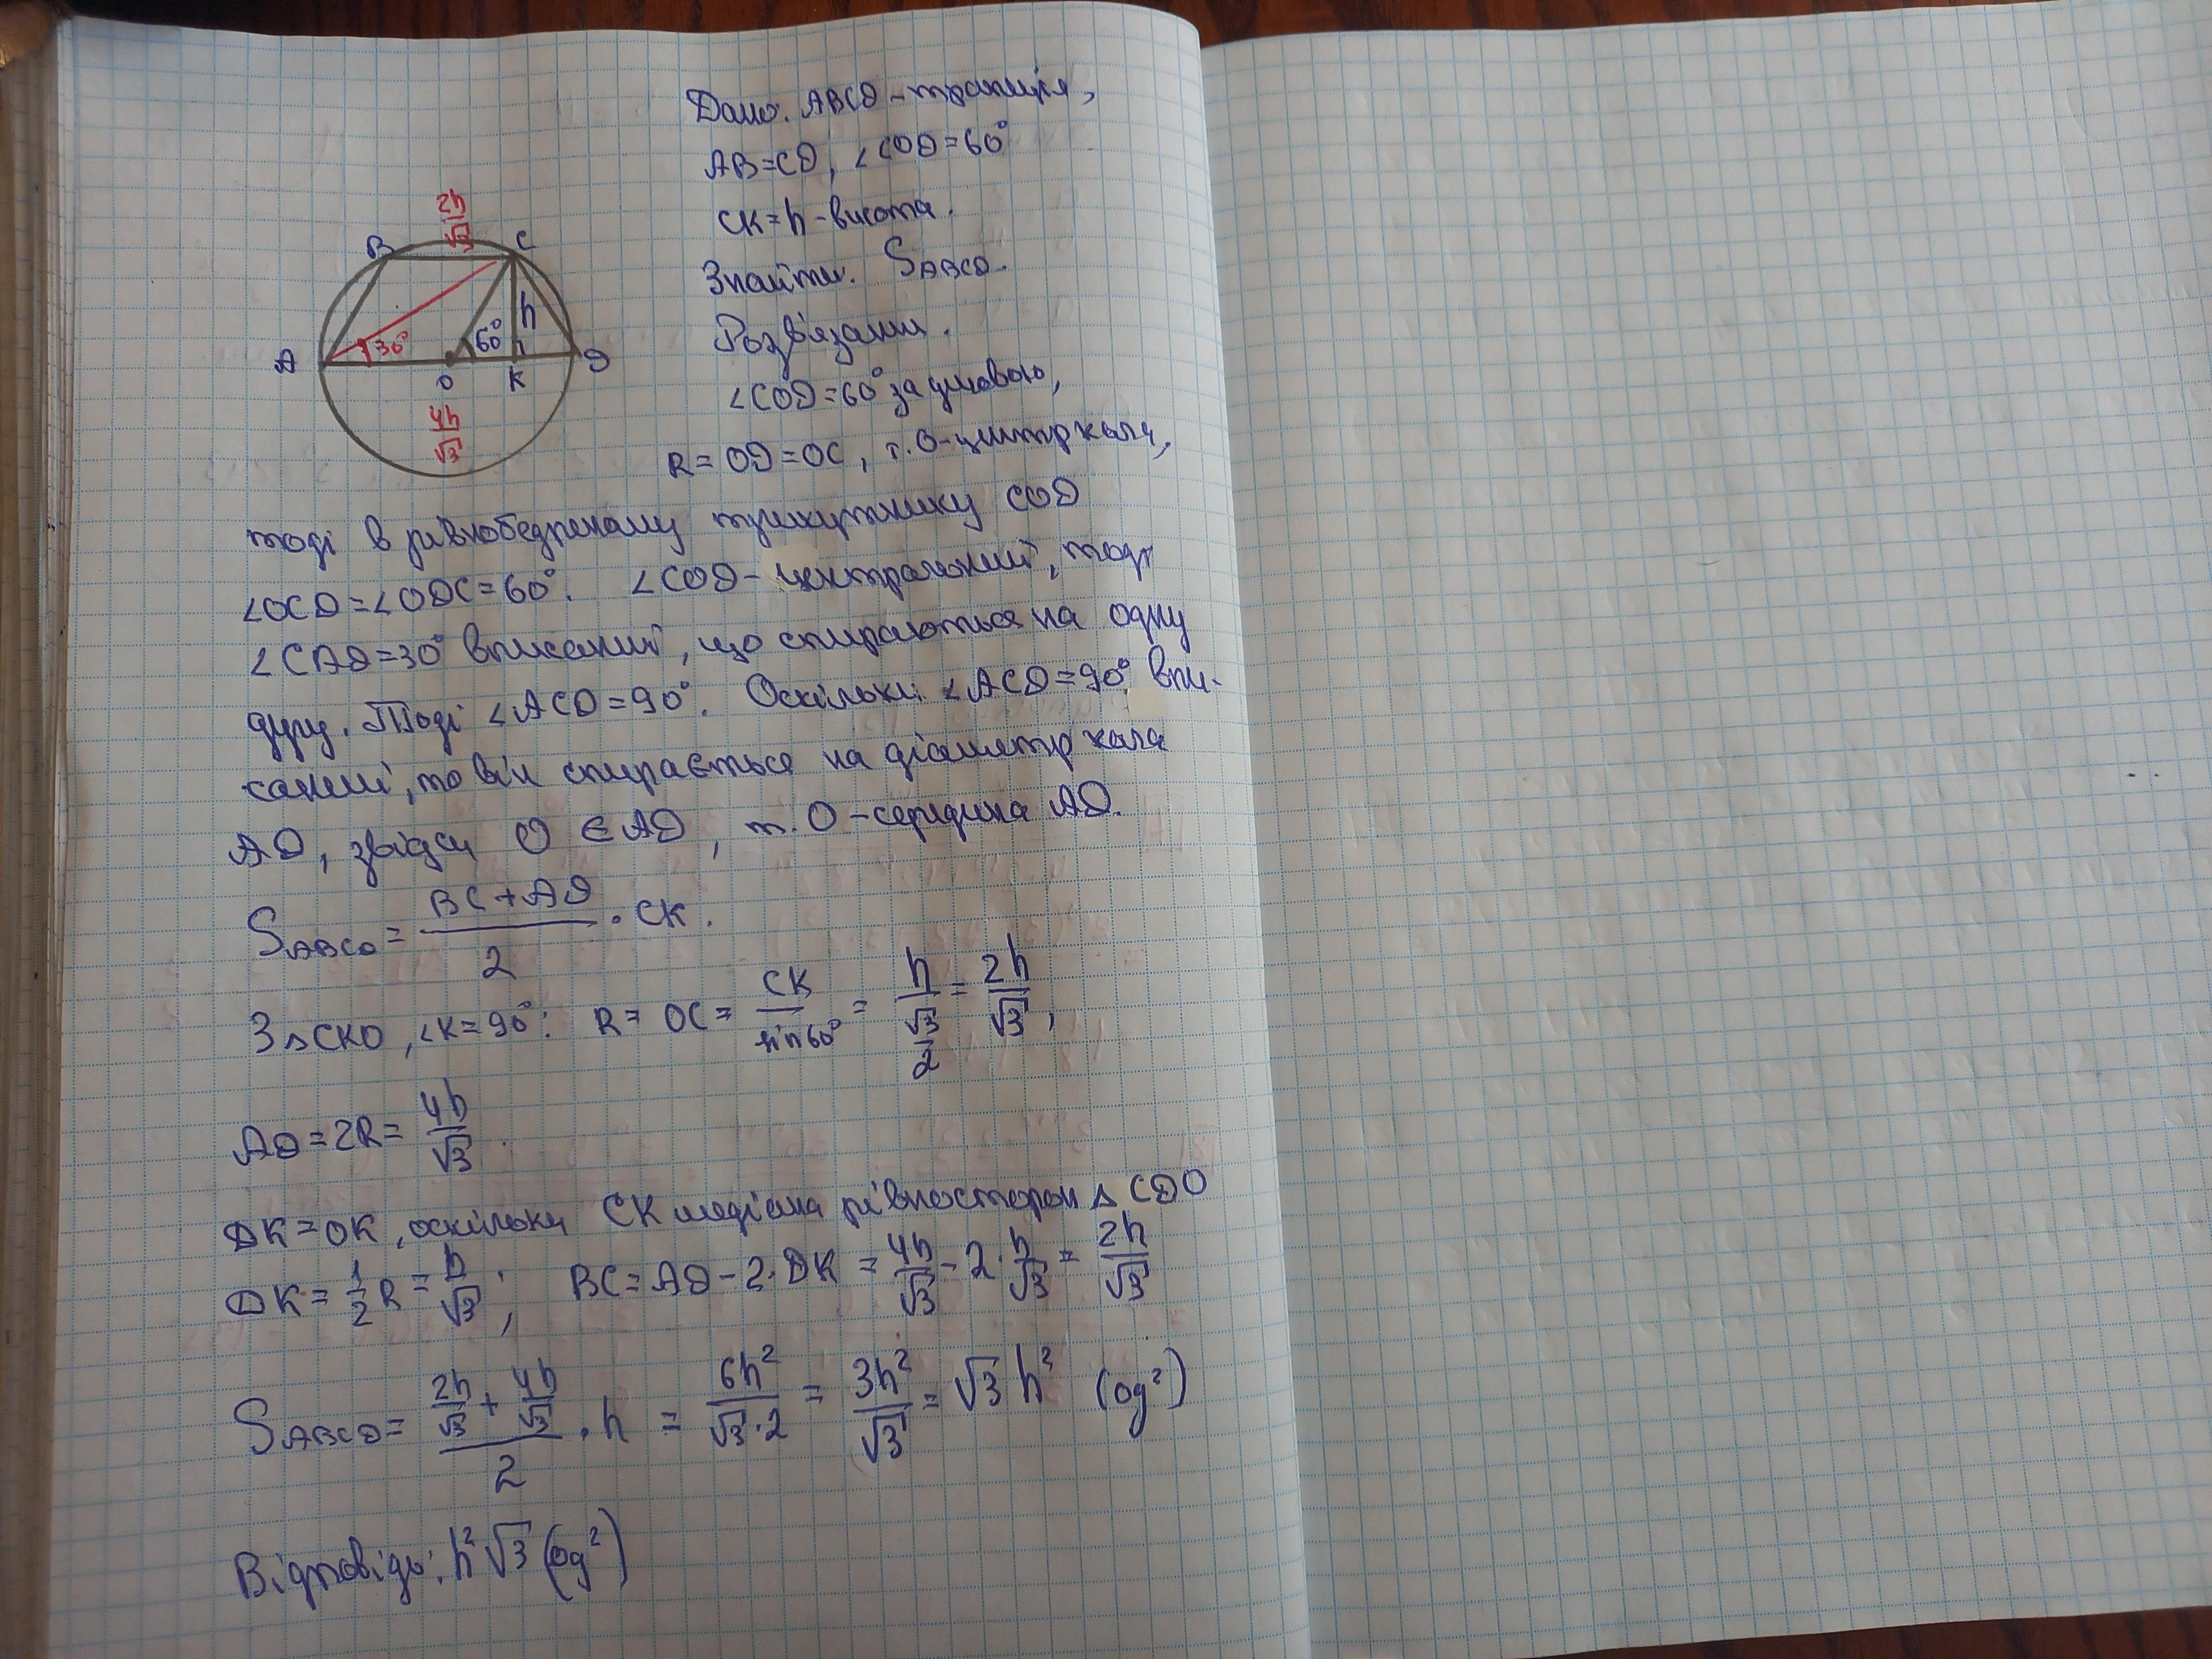 Дано: ABCD - трапеція,
AB=CD, ∠COD=60°
CK=h - висота.
Знайти: S_ABCD.
Розв'язання.
∠COD=60° за умовою,
R=OD=OC, т. O - центр кола,
2h/√3
B C
h
30° 60°
A O K D
4h/√3
тоді в рівнобедреному трикутнику COD
∠OCD=∠ODC=60°. ∠COD - центральний, тоді
∠CAD=30° вписаний, що спираються на одну
дугу. Тоді ∠ACD=90°. Оскільки ∠ACD=90° впи-
саний, то він спирається на діаметр кола
AD, звідси O ∈ AD, т. O - середина AD.
S_ABCD = (BC+AD)/2 · CK.
З △CKO, ∠K=90°: R=OC= CK/sin60° = h/(√3/2) = 2h/√3,
AD=2R= 4h/√3.
DK=OK, оскільки CK медіана рівносторон △CDO
DK= 1/2 R = h/√3; BC=AD-2·DK = 4h/√3 - 2· h/√3 = 2h/√3
S_ABCD = (2h/√3 + 4h/√3)/2 · h = 6h²/(√3·2) = 3h²/√3 = √3 h² (од²)
Відповідь: h²√3 (од²)